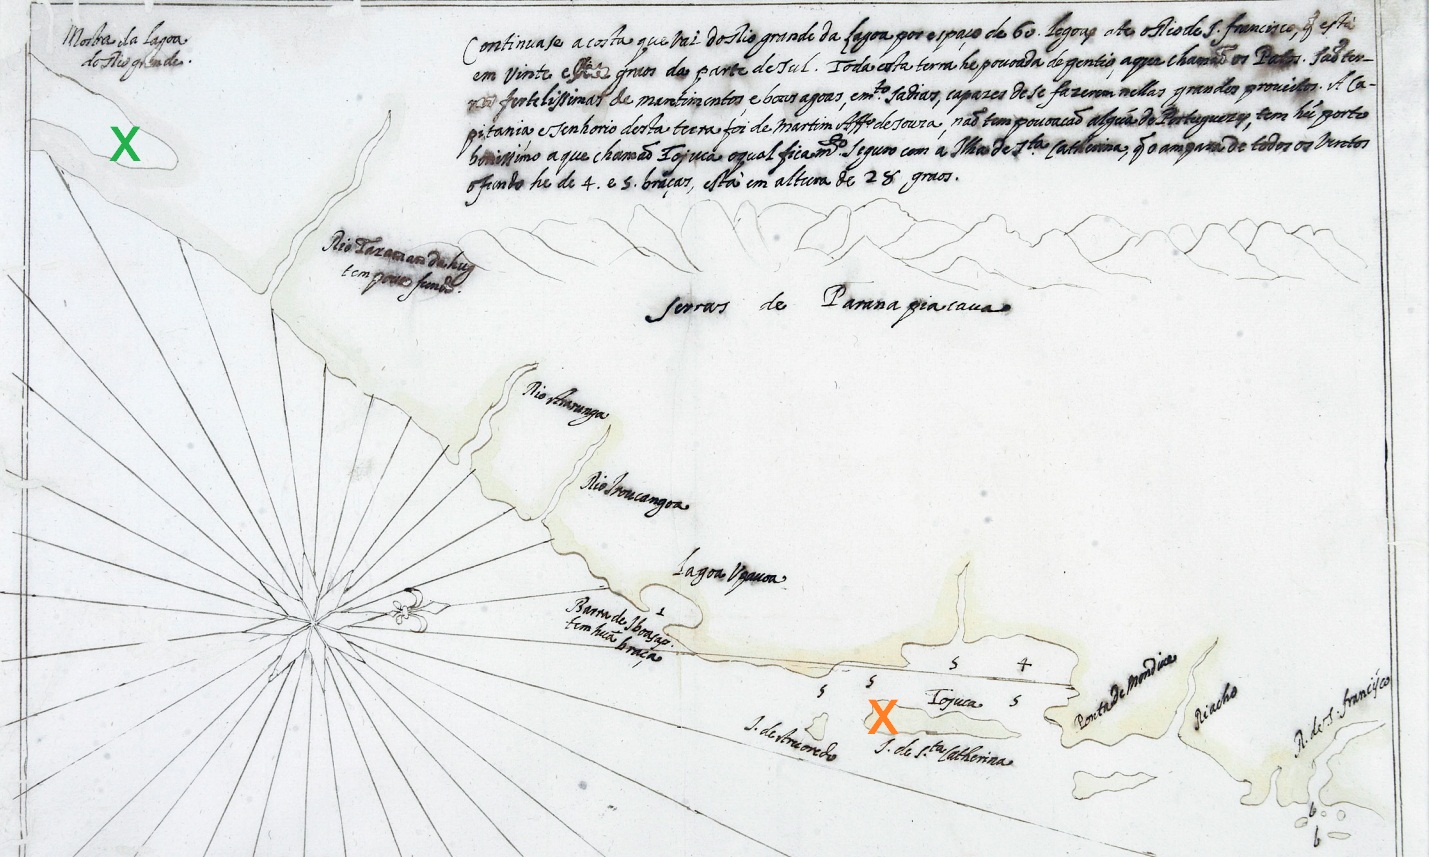 Mostra da Lagoa
do Rio grande.
Continuase a costa que vai do Rio grande da Lagoa por espaço de 60. legoas ate o Rio de S. francisco, q̃ está
em vinte e graos da parte de Sul. Toda esta terra he povoada de gentio, a que chamaõ os Patos. Saõ ter-
ras fertelissimas de mantimentos e boas agoas, e m.to sadias, capazes de se fazerem nellas grandes proueitos. A Ca-
pitania e senhorio desta terra foi de Martim Aff.o de souza, naõ tem pouoacaõ algũa de Portuguezes, tem hũ porto
bonissimo a que chamaõ Tojuca o qual fica m.to Seguro com a Ilha de S.ta Catherina, q̃ o ampara de todos os Ventos
o fundo he de 4. e 5. braças, está em altura de 28 graos.
X
Rio
tem pouco fundo.
Serras de Parana pia caua
Rio Ararunga
Rio
Lagoa Vpaua
1
Barra de
tem huã
braça
5 4
5
5
5
Tojuca
X
I. de Aruoredo
I. de S.ta Catherina
Ponta de
Riacho
R. de S. francisco
6
6